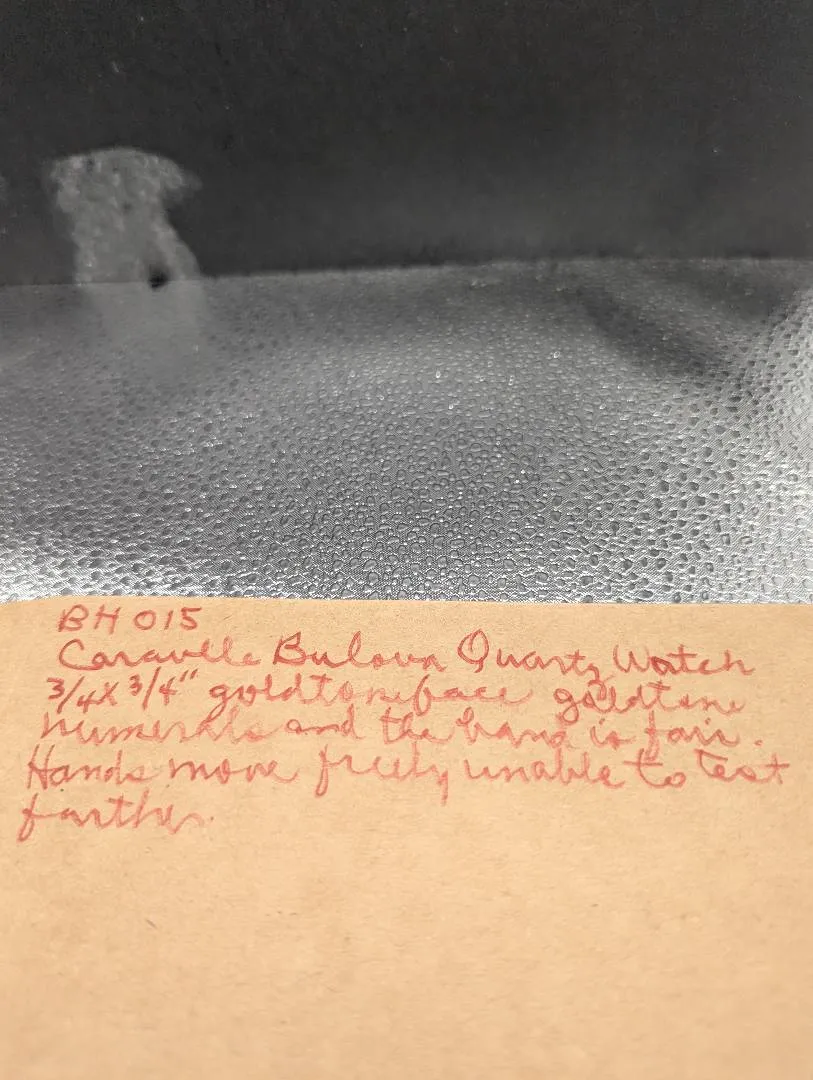 BH 015
Caravelle Bulova Quartz Watch
3/4 X 3/4" goldtone face goldtone
numerals and the band is fair.
Hands move freely unable to test
further.